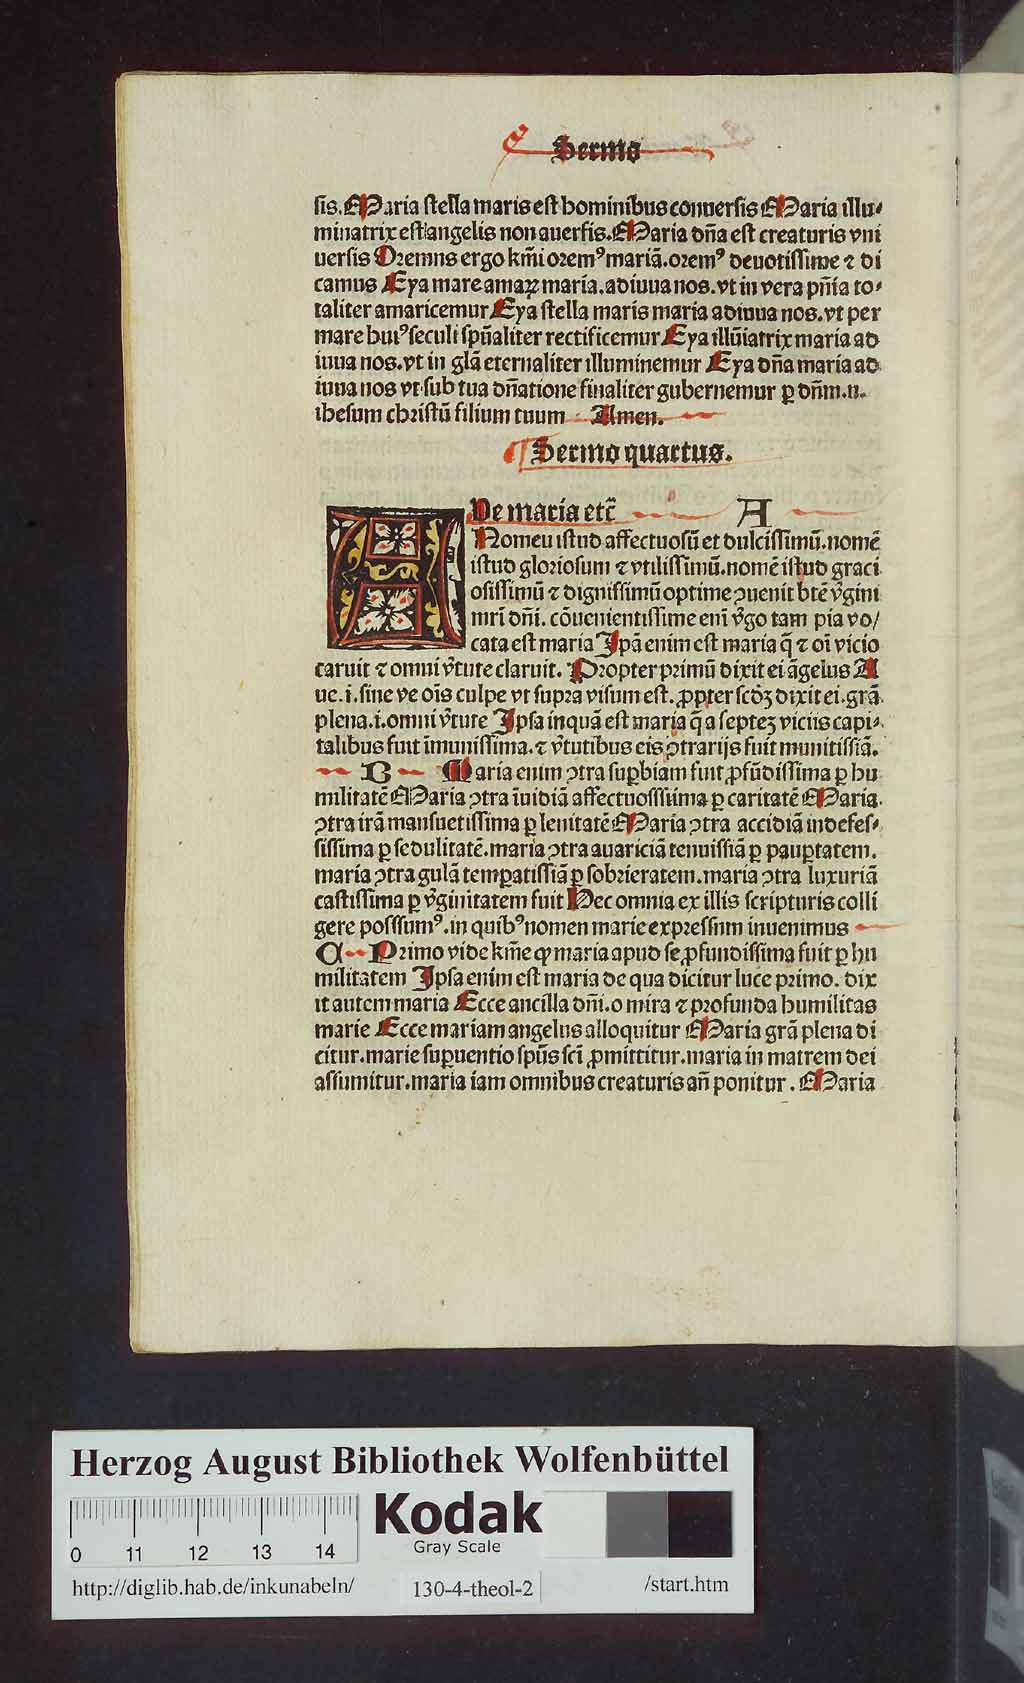 Sermo
sis. Maria stella maris est hominibus conuersis Maria illu⸗
minatrix est angelis non auersis. Maria dña est creaturis vni
uersis Oremus ergo km̄i oremꝰ mariā. oremꝰ deuotissime ⁊ di
camus Eya mare amaꝝ maria. adiuua nos. vt in vera pñia to⸗
taliter amaricemur Eya stella maris maria adiuua nos. vt per
mare huiꝰ seculi spūaliter rectificemur Eya illūiatrix maria ad
iuua nos. vt in glā eternaliter illuminemur Eya dña maria ad
iuua nos vt sub tua dñatione finaliter gubernemur ꝑ dñm. n.
ihesum christū filium tuum Amen.
Sermo quartus.
AUe maria etc̄ A
Nomen istud affectuosū et dulcissimū. nomē
istud gloriosum ⁊ vtilissimū. nomē istud graci
osissimū ⁊ dignissimū optime ꝯuenit btē v̄gini
mr̄i dñi. cōuenientissime eni v̄go tam pia vo/
cata est maria Ipā enim est maria q̄ ⁊ oī vicio
caruit ⁊ omni v̄tute claruit. Propter primū dixit ei āgelus A
ue. i. sine ve oīs culpe vt supra visum est. ꝓpter scd̄ꝫ dixit ei. grā
plena. i. omni v̄tute Ipsa inquā est maria q̄ a septeꝫ viciis capi⸗
talibus fuit īmunissima. ⁊ v̄tutibus eis ꝯtrarijs fuit munitissīa.
B Maria enim ꝯtra suꝑbiam fuit ꝓfūdissima ꝑ hu
militatē Maria ꝯtra īuidiā affectuosssima ꝑ caritatē Maria
ꝯtra irā mansuetissima ꝑ lenitatē Maria ꝯtra accidiā indefes⸗
sissima ꝑ sedulitatē. maria ꝯtra auariciā tenuissīa ꝑ pauꝑtatem.
maria ꝯtra gulā temꝑatissīa ꝑ sobrietatem. maria ꝯtra luxuriā
castissima ꝑ v̄ginitatem fuit Hec omnia ex illis scripturis colli
gere posssumꝰ. in quibꝰ nomen marie expressum inuenimus
C Primo vide km̄e ꝙ maria apud se ꝓfundissima fuit ꝑ hu
militatem Ipsa enim est maria de qua dicitur luce primo. dix
it autem maria Ecce ancilla dñi. o mira ⁊ profunda humilitas
marie Ecce mariam angelus alloquitur Maria grā plena di
citur. marie suꝑuentio spūs sci ꝓmittitur. maria in matrem dei
assumitur. maria iam omnibus creaturis añ ponitur. Maria
Herzog August Bibliothek Wolfenbüttel
0 11 12 13 14
Kodak
Gray Scale
http://diglib.hab.de/inkunabeln/ 130-4-theol-2 /start.htm